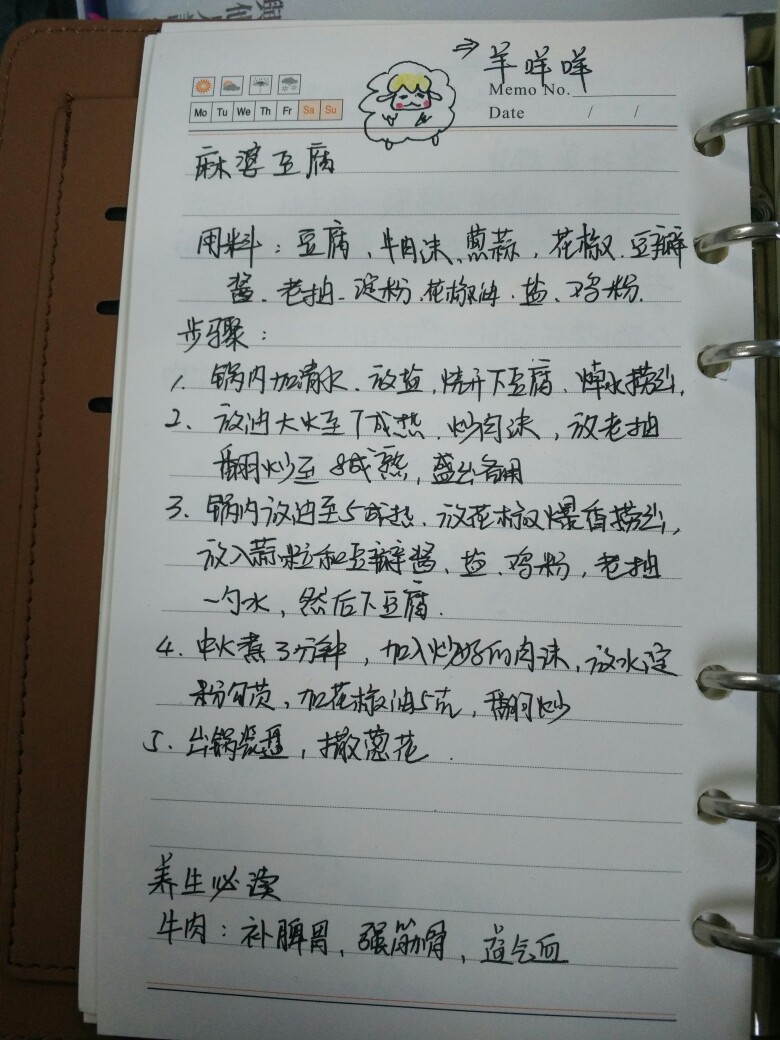 ⇒ 羊咩咩
Memo No.
Mo Tu We Th Fr Sa Su
Date / /
麻婆豆腐
用料：豆腐、牛肉沫、葱蒜，花椒、豆瓣
酱、老抽、淀粉、花椒油、盐、鸡粉.
步骤：
1、锅内加清水、放盐，烧开下豆腐、焯水捞出,
2、放油大火至7成热、炒肉沫，放老抽
翻炒至8成熟，盛出备用
3、锅内放油至5成热、放花椒爆香捞出,
放入蒜粒和豆瓣酱、盐、鸡粉，老抽
一勺水，然后下豆腐.
4、中火煮3分钟，加入炒好的肉沫，放水淀
粉勾芡，加花椒油5克，翻炒
5、出锅装盘，撒葱花.
养生必读
牛肉：补脾胃，强筋骨，益气血